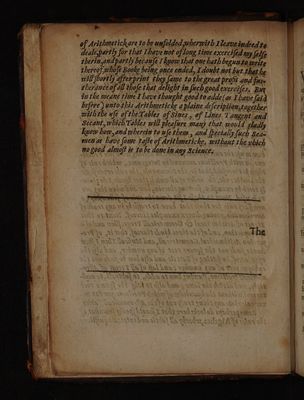 of Arithmetick are to be unfolded, wherwith I leave indeed to
deale, partly for that I have not of long time exercised my selfe
therin, and partly because I know that one hath begun to write
thereof, whose Booke being once ended, I doubt not but that he
will shortly after print they same to the great profit and fur-
therance of all those that delight in such good exercises. But
in the meane time I have thought good to adde (as I have said
before) unto this Arithmeticke a plaine discription, together
with the use of the Tables of Sines, of Lines Tangent and
Secant, which Tables will pleasure many that would gladly
know how, and wherein to use them, and specially such Sea-
men as have some taste of Arithmeticke, without the which
no good almost is to be done in any Science.
The